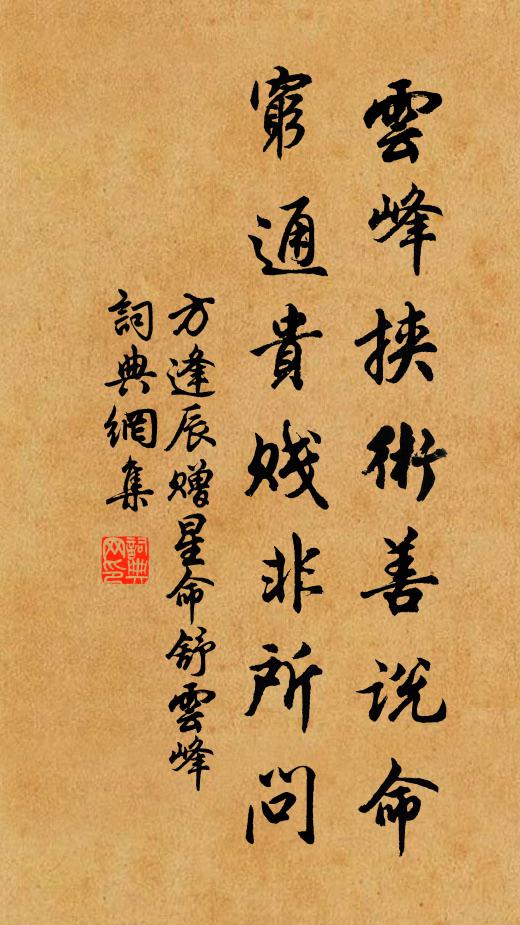 雲峰挾術善説命
窮通貴賤非所問
方逢辰贈星命舒雲峰
詞典網集
詞典网印